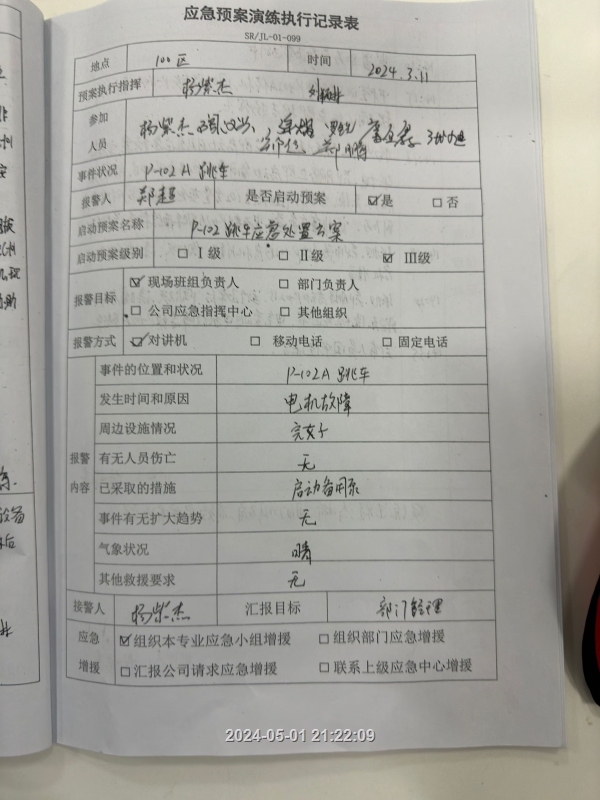 应急预案演练执行记录表
SR/JL-01-099
地点 100区 时间 2024.3.11
预案执行指挥 杨紫杰
参加人员 杨紫杰
事件状况 P-102A 跳车
报警人 郑超 是否启动预案 ☑是 □否
启动预案名称 P-102跳车应急处置方案
启动预案级别 □Ⅰ级 □Ⅱ级 ☑Ⅲ级
报警目标 ☑现场班组负责人 □部门负责人
□公司应急指挥中心 □其他组织
报警方式 ☑对讲机 □移动电话 □固定电话
报警内容 事件的位置和状况 P-102A 跳车
发生时间和原因 电机故障
周边设施情况 完好
有无人员伤亡 无
已采取的措施 启动备用泵
事件有无扩大趋势 无
气象状况 晴
其他救援要求 无
接警人 杨紫杰 汇报目标 部门经理
应急增援 ☑组织本专业应急小组增援 □组织部门应急增援
□汇报公司请求应急增援 □联系上级应急中心增援
2024-05-01 21:22:09